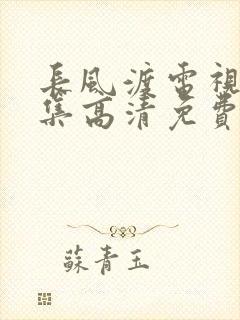 長風渡電視
集高清免費
蘇青玉